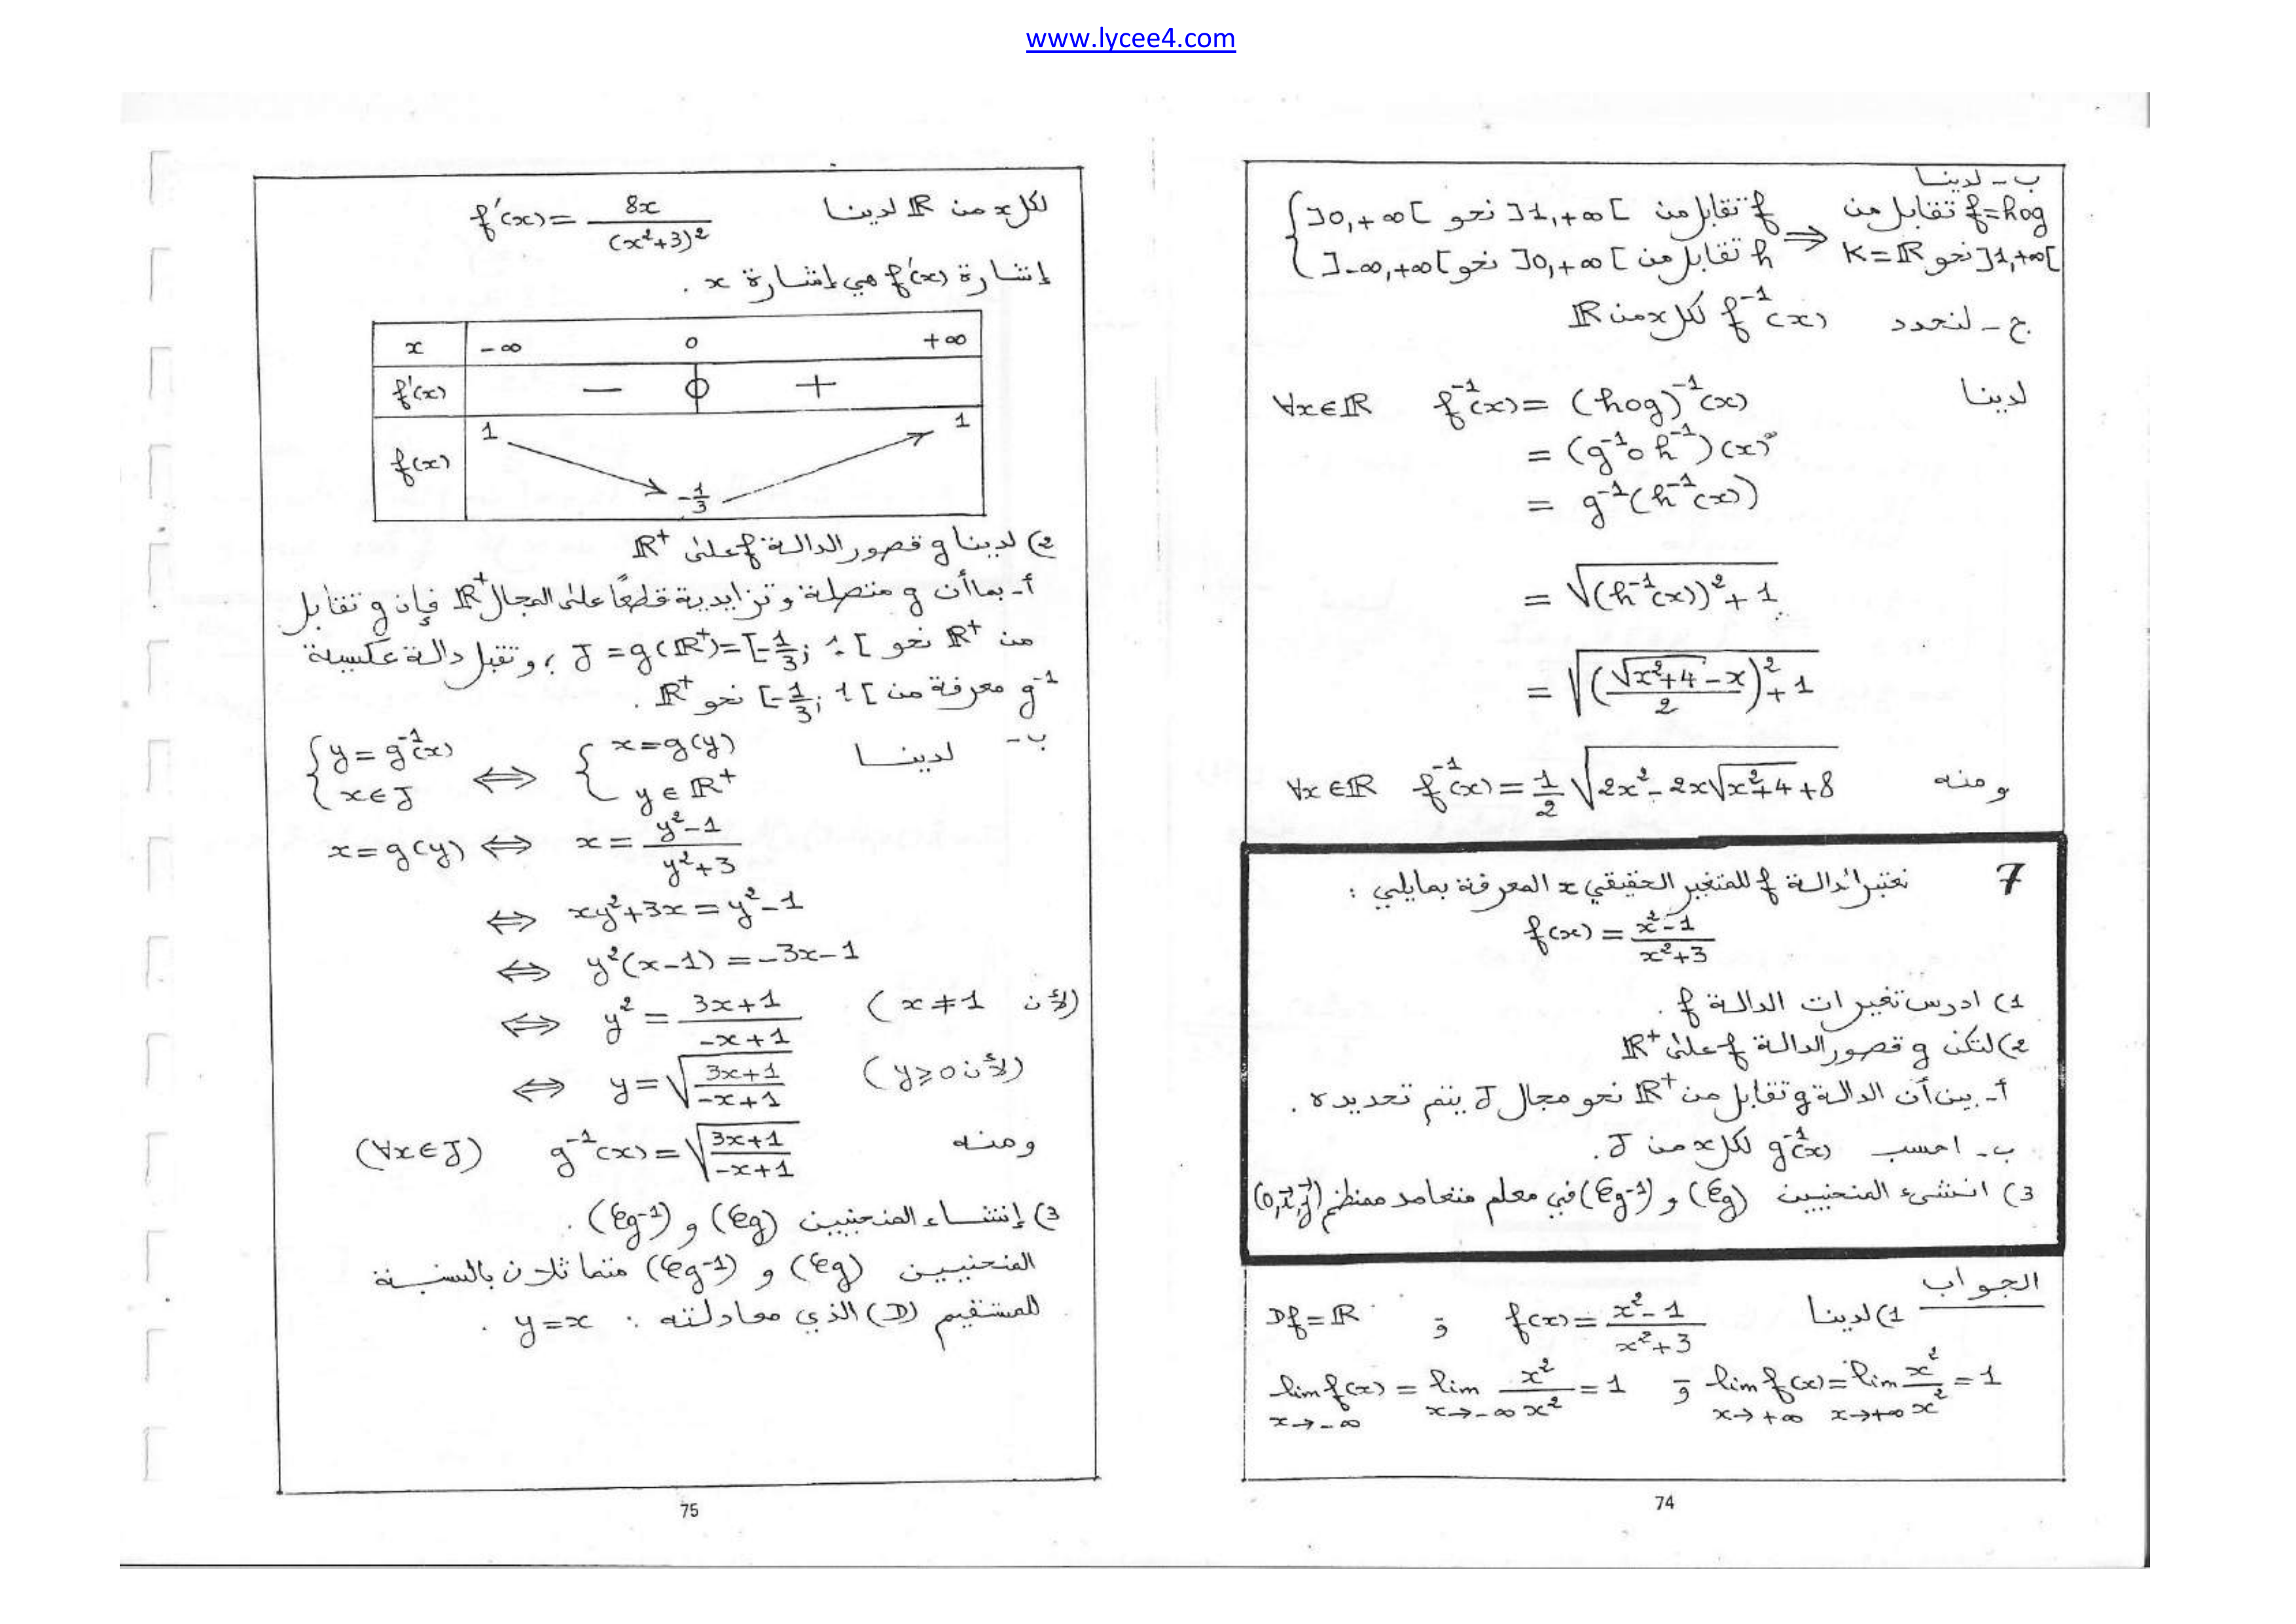 www.lycee4.com
ب - لدينا
f=hog تقابل من ]1,+∞[ نحو K=ℝ ⇐ { f تقابل من ]1,+∞[ نحو ]0,+∞[
h تقابل من ]0,+∞[ نحو ]-∞,+∞[
ج - لنحدد f⁻¹(x) لكل x من ℝ
لدينا ∀x∈ℝ f⁻¹(x) = (hog)⁻¹(x)
= (g⁻¹oh⁻¹)(x)
= g⁻¹(h⁻¹(x))
= √((h⁻¹(x))²+1)
= √(((√(x²+4) - x)/2)²+1)
ومنه ∀x∈ℝ f⁻¹(x) = 1/2 √(2x²-2x√(x²+4)+8)
7 نعتبر الدالة f للمتغير الحقيقي x المعرفة بمايلي :
f(x) = (x²-1)/(x²+3)
1) ادرس تغيرات الدالة f .
2) لتكن g قصور الدالة f على ℝ⁺
أ- بين أن الدالة g تقابل من ℝ⁺ نحو مجال J يتم تحديده .
ب- احسب g⁻¹(x) لكل x من J .
3) انشىء المنحنيين (𝒞g) و (𝒞g⁻¹) في معلم متعامد ممنظم (0,i⃗,j⃗)
الجواب
1) لدينا f(x) = (x²-1)/(x²+3) و Df=ℝ
lim f(x) = lim x²/x² = 1 و lim f(x) = lim x²/x² = 1
x→-∞ x→-∞ x→+∞ x→+∞
74
لكل x من ℝ لدينا f'(x) = 8x/(x²+3)²
إشارة f'(x) هي إشارة x .
x -∞ 0 +∞
f'(x) - 0 +
f(x) 1 -1/3 1
2) لدينا g قصور الدالة f على ℝ⁺
أ- بما أن g متصلة و تزايدية قطعًا على المجال ℝ⁺ فإن g تقابل
من ℝ⁺ نحو J = g(ℝ⁺) = [-1/3 ; 1[ ، وتقبل دالة عكسية
g⁻¹ معرفة من [-1/3 ; 1[ نحو ℝ⁺ .
ب- لدينا { y = g⁻¹(x) , x∈J ⟺ { x=g(y) , y∈ℝ⁺
x=g(y) ⟺ x = (y²-1)/(y²+3)
⟺ xy²+3x = y²-1
⟺ y²(x-1) = -3x-1
⟺ y² = (3x+1)/(-x+1) (لأن x≠1)
⟺ y = √((3x+1)/(-x+1)) (لأن y⩾0)
ومنه g⁻¹(x) = √((3x+1)/(-x+1)) (∀x∈J)
3) إنشاء المنحنيين (𝒞g) و (𝒞g⁻¹) .
المنحنيين (𝒞g) و (𝒞g⁻¹) متماثلان بالنسبة
للمستقيم (D) الذي معادلته : y=x .
75